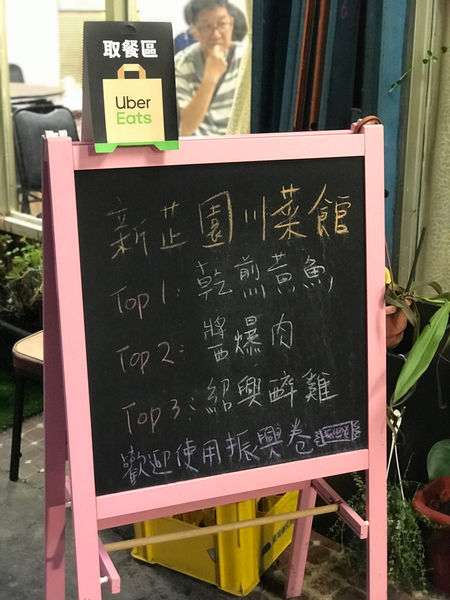 取餐區
Uber
Eats
新芷園川菜館
Top 1: 乾煎黃魚
Top 2: 醬爆肉
Top 3: 紹興醉雞
歡迎使用振興卷